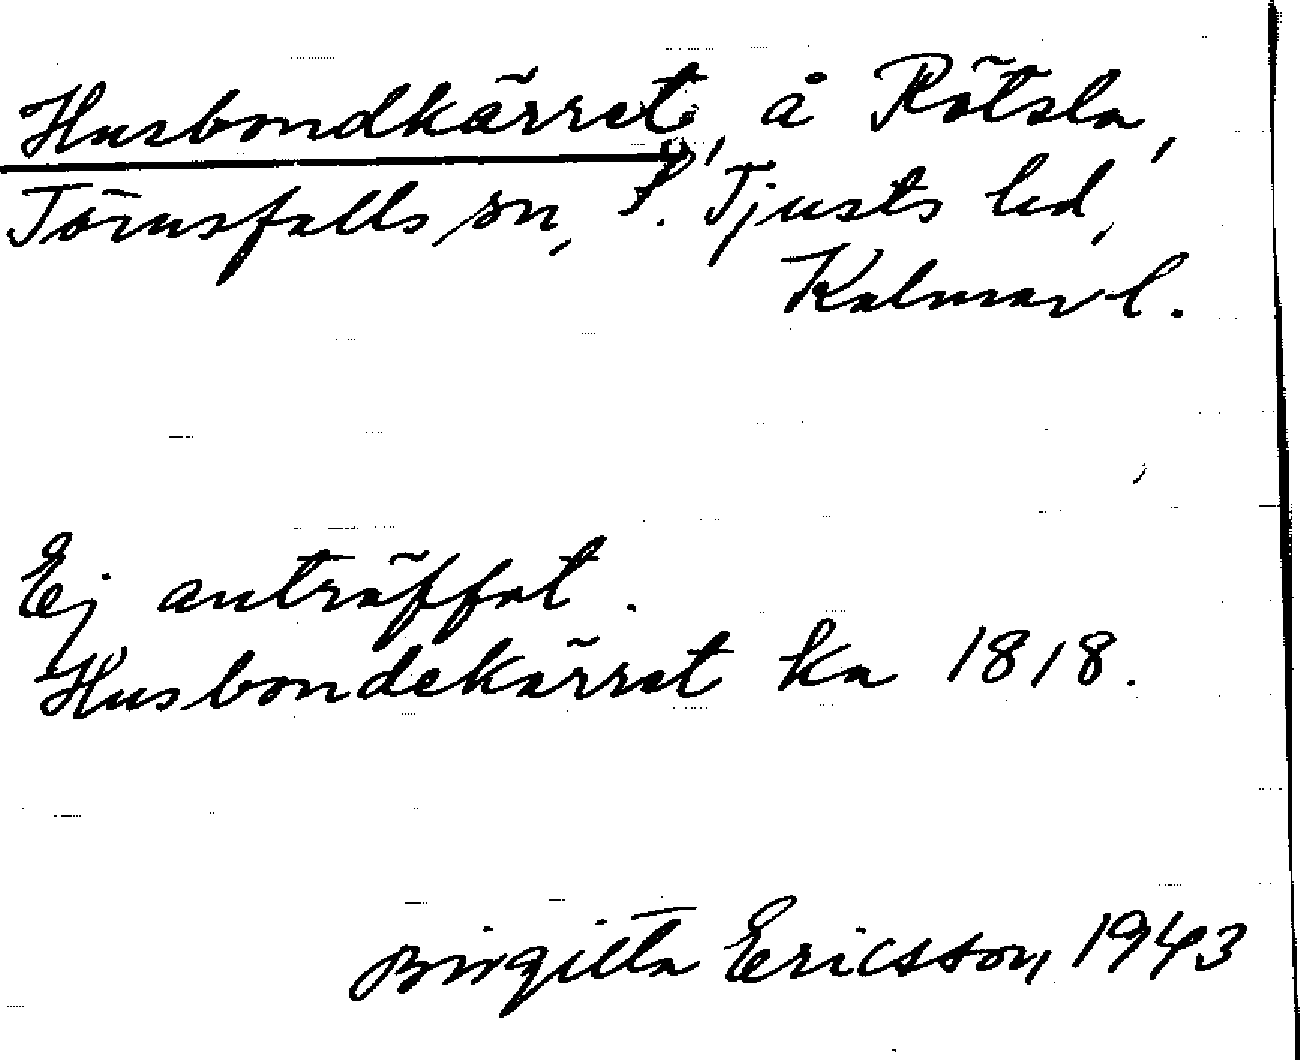 Husbondkärret, å Rötsla,
Törnsfalls sn, S. Tjusts hd,
Kalmar l.
Ej anträffat.
Husbondekärret ka 1818.
Birgitta Ericsson, 1943